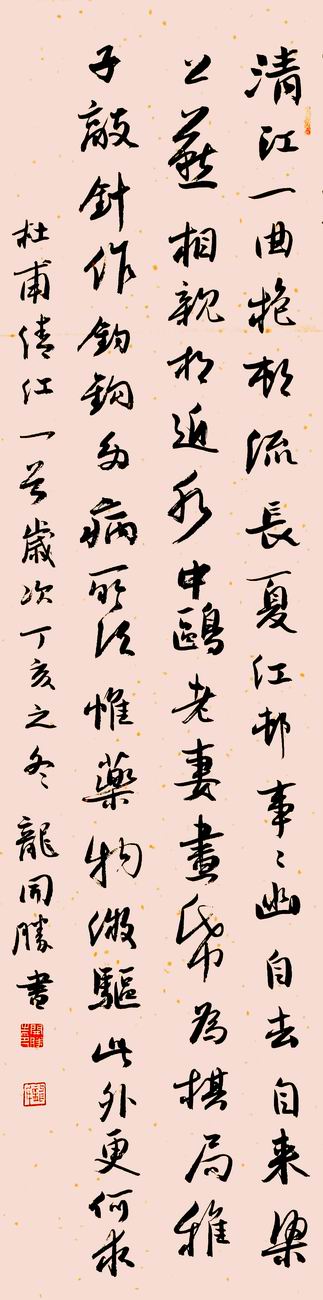 清江一曲抱村流長夏江邨事〻幽自去自来梁
上燕相親相近水中鷗老妻畫帋為棋局稚
子敲針作釣鉤多病所須惟藥物微驅此外更何求
杜甫清江一首歲次丁亥之冬龍開勝書